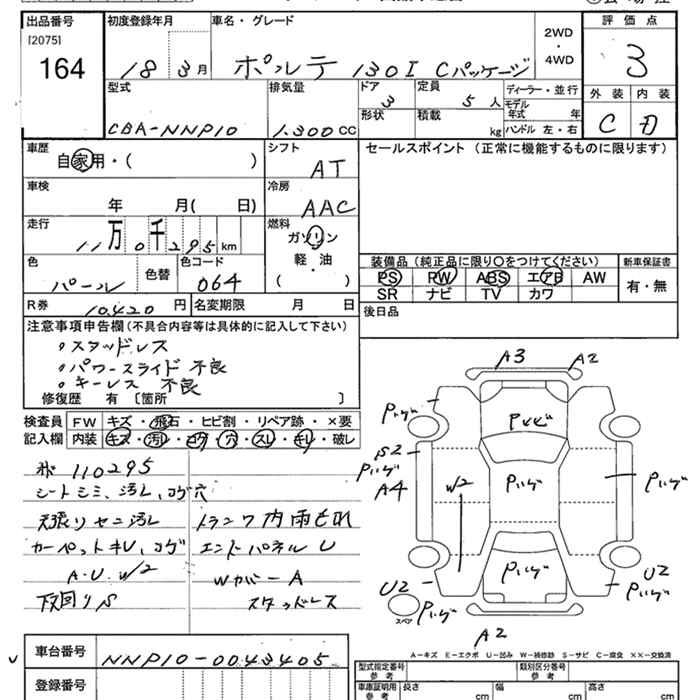 出品番号 初度登録年月 車名・グレード 2WD ・ 4WD 評価点
[2075]
164 18 3月 ポルテ 130I Cパッケージ 3
型式 排気量 ドア 3 定員 5人 ディーラー・並行 外装 内装
CBA-NNP10 1.300CC 形状 積載 kg モデル年式 年 C D
ハンドル 左・右
車歴 シフト セールスポイント（正常に機能するものに限ります）
自家用・( ) AT
車検 冷房
年 月( 日) AAC
走行 燃料
11万0千295km ガソリン
色 色替 色コード 軽・油 装備品（純正品に限り○をつけてください） 新車保証書
パール 064 ( ) PS PW ABS エアB AW 有・無
SR ナビ TV カワ
R券 10420円 名変期限 月 日 後日品
注意事項申告欄（不具合内容等は具体的に記入して下さい）
・スタッドレス
・パワースライド不良
・キーレス 不良
修復歴 有〔箇所 〕
検査員 FW キズ・飛石・ヒビ割・リペア跡・×要
記入欄 内装 キズ・汚レ・コゲ・穴・スレ・キレ・破レ
110295
シートシミ、汚レ、コゲ穴
天張リヤニ汚レ トランク内雨もれ
カーペットキレ、コゲ エンドパネルU
A.U.W2 Wカバー A
下回りS スタッドレス
A3 A2
Pハゲ Pトビ
S2
Pハゲ W2 Pハゲ Pハゲ
A4
Pハゲ
U2 Pハゲ U2 Pハゲ
スペア
A2
A-キズ E-エクボ U-凹み W-補修跡 S-サビ C-腐食 XX-交換済
車台番号 NNP10-0043405
登録番号
型式指定番号 参考 類別区分番号 参考
車庫証明用 参考 長さ cm 幅 cm 高さ cm